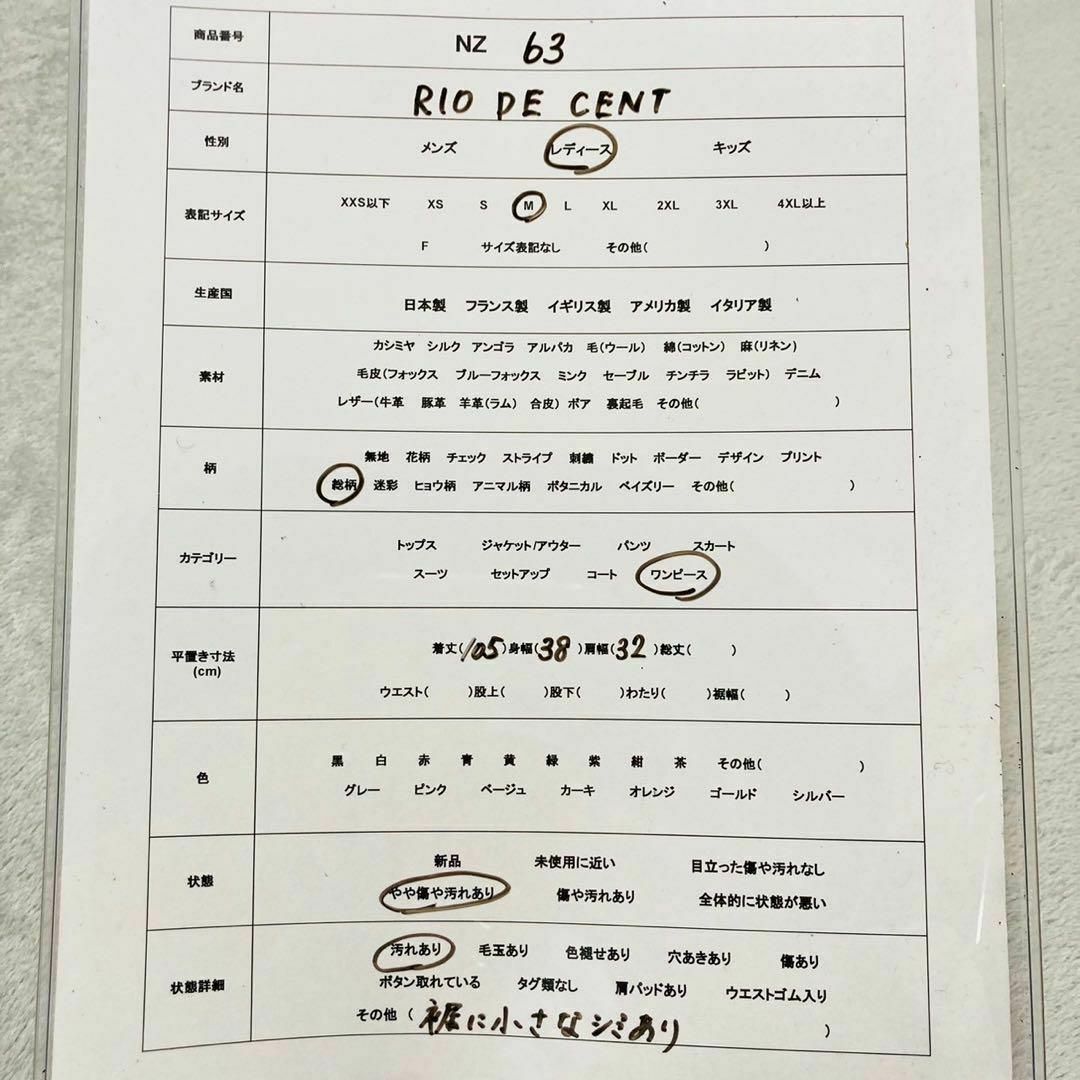 商品番号 NZ 63
ブランド名 RIO DE CENT
性別 メンズ レディース キッズ
表記サイズ XXS以下 XS S M L XL 2XL 3XL 4XL以上
F サイズ表記なし その他( )
生産国 日本製 フランス製 イギリス製 アメリカ製 イタリア製
カシミヤ シルク アンゴラ アルパカ 毛(ウール) 綿(コットン) 麻(リネン)
素材 毛皮(フォックス ブルーフォックス ミンク セーブル チンチラ ラビット) デニム
レザー(牛革 豚革 羊革(ラム) 合皮) ボア 裏起毛 その他( )
無地 花柄 チェック ストライプ 刺繍 ドット ボーダー デザイン プリント
柄 総柄 迷彩 ヒョウ柄 アニマル柄 ボタニカル ペイズリー その他( )
トップス ジャケット/アウター パンツ スカート
カテゴリー スーツ セットアップ コート ワンピース
平置き寸法 着丈(105)身幅(38)肩幅(32)総丈( )
(cm) ウエスト( )股上( )股下( )わたり( )裾幅( )
黒 白 赤 青 黄 緑 紫 紺 茶 その他( )
色 グレー ピンク ベージュ カーキ オレンジ ゴールド シルバー
新品 未使用に近い 目立った傷や汚れなし
状態 やや傷や汚れあり 傷や汚れあり 全体的に状態が悪い
汚れあり 毛玉あり 色褪せあり 穴あきあり 傷あり
状態詳細 ボタン取れている タグ類なし 肩パッドあり ウエストゴム入り
その他 ( 裾に小さなシミあり )